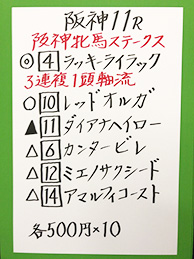 阪神11R
阪神牝馬ステークス
◎4ラッキーライラック
3連複1頭軸流
○10レッドオルガ
▲11ダイアナヘイロー
△6カンタービレ
△12ミエノサクシード
△14アマルフィコースト
各500円×10